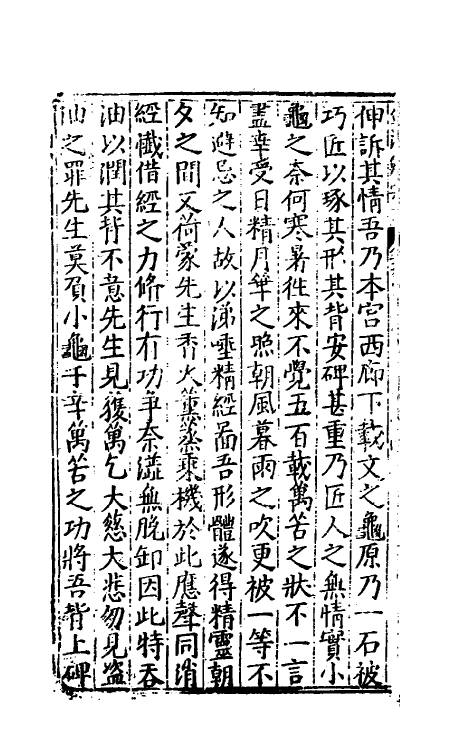 伸訴其情吾乃本宫西廊下載文之龜原乃一石被
巧匠以琢其形其背安碑甚重乃匠人之無情實小
龜之奈何寒暑徃來不覺五百載萬苦之狀不一言
盡幸受日精月華之照朝風暮雨之吹更被一等不
知避忌之人故以涕唾精經啚吾形體遂得精靈朝
夕之間又荷蒙先生香火薰蒸乘機於此應聲同消
經懺借經之力修行有功爭奈濫無脫卸因此特吞
油以潤其背不意先生見獲萬乞大慈大悲勿見盗
油之罪先生莫負小龜千辛萬苦之功將吾背上碑